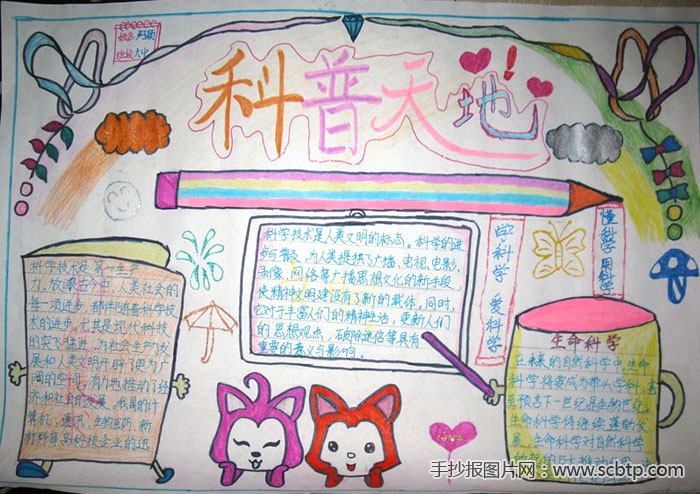 科普天地
科学技术是第一生产
力,放眼古今中,人类社会的
每一项进步,都伴随着科学技
术的进步。尤其是现代科技
的突飞猛进,为社会生产力发
展和人类文明开辟了更为广
阔的空间,有力地推动了经
济和社会的发展。我国的计
算机、通讯、生物医药、新
材料等高科技企业的迅
科学技术是人类文明的标志。科学的进
步与普及,为人类提供了广播、电视、电影、
录像、网络等传播思想文化的新手段,
使精神文明建设有了新的载体。同时,
它对于丰富人们的精神生活,更新人们
的思想观点,破除迷信等具有
重要的意义与影响。
学科学 爱科学
懂科学 用科学
生命科学
在未来的自然科学中,生命
科学将要成为带头学科,甚
至预言下一世纪是生物世纪。
生命科学将继续蓬勃发
展,生命科学对自然科学
手抄报图片网:www.scbtp.com